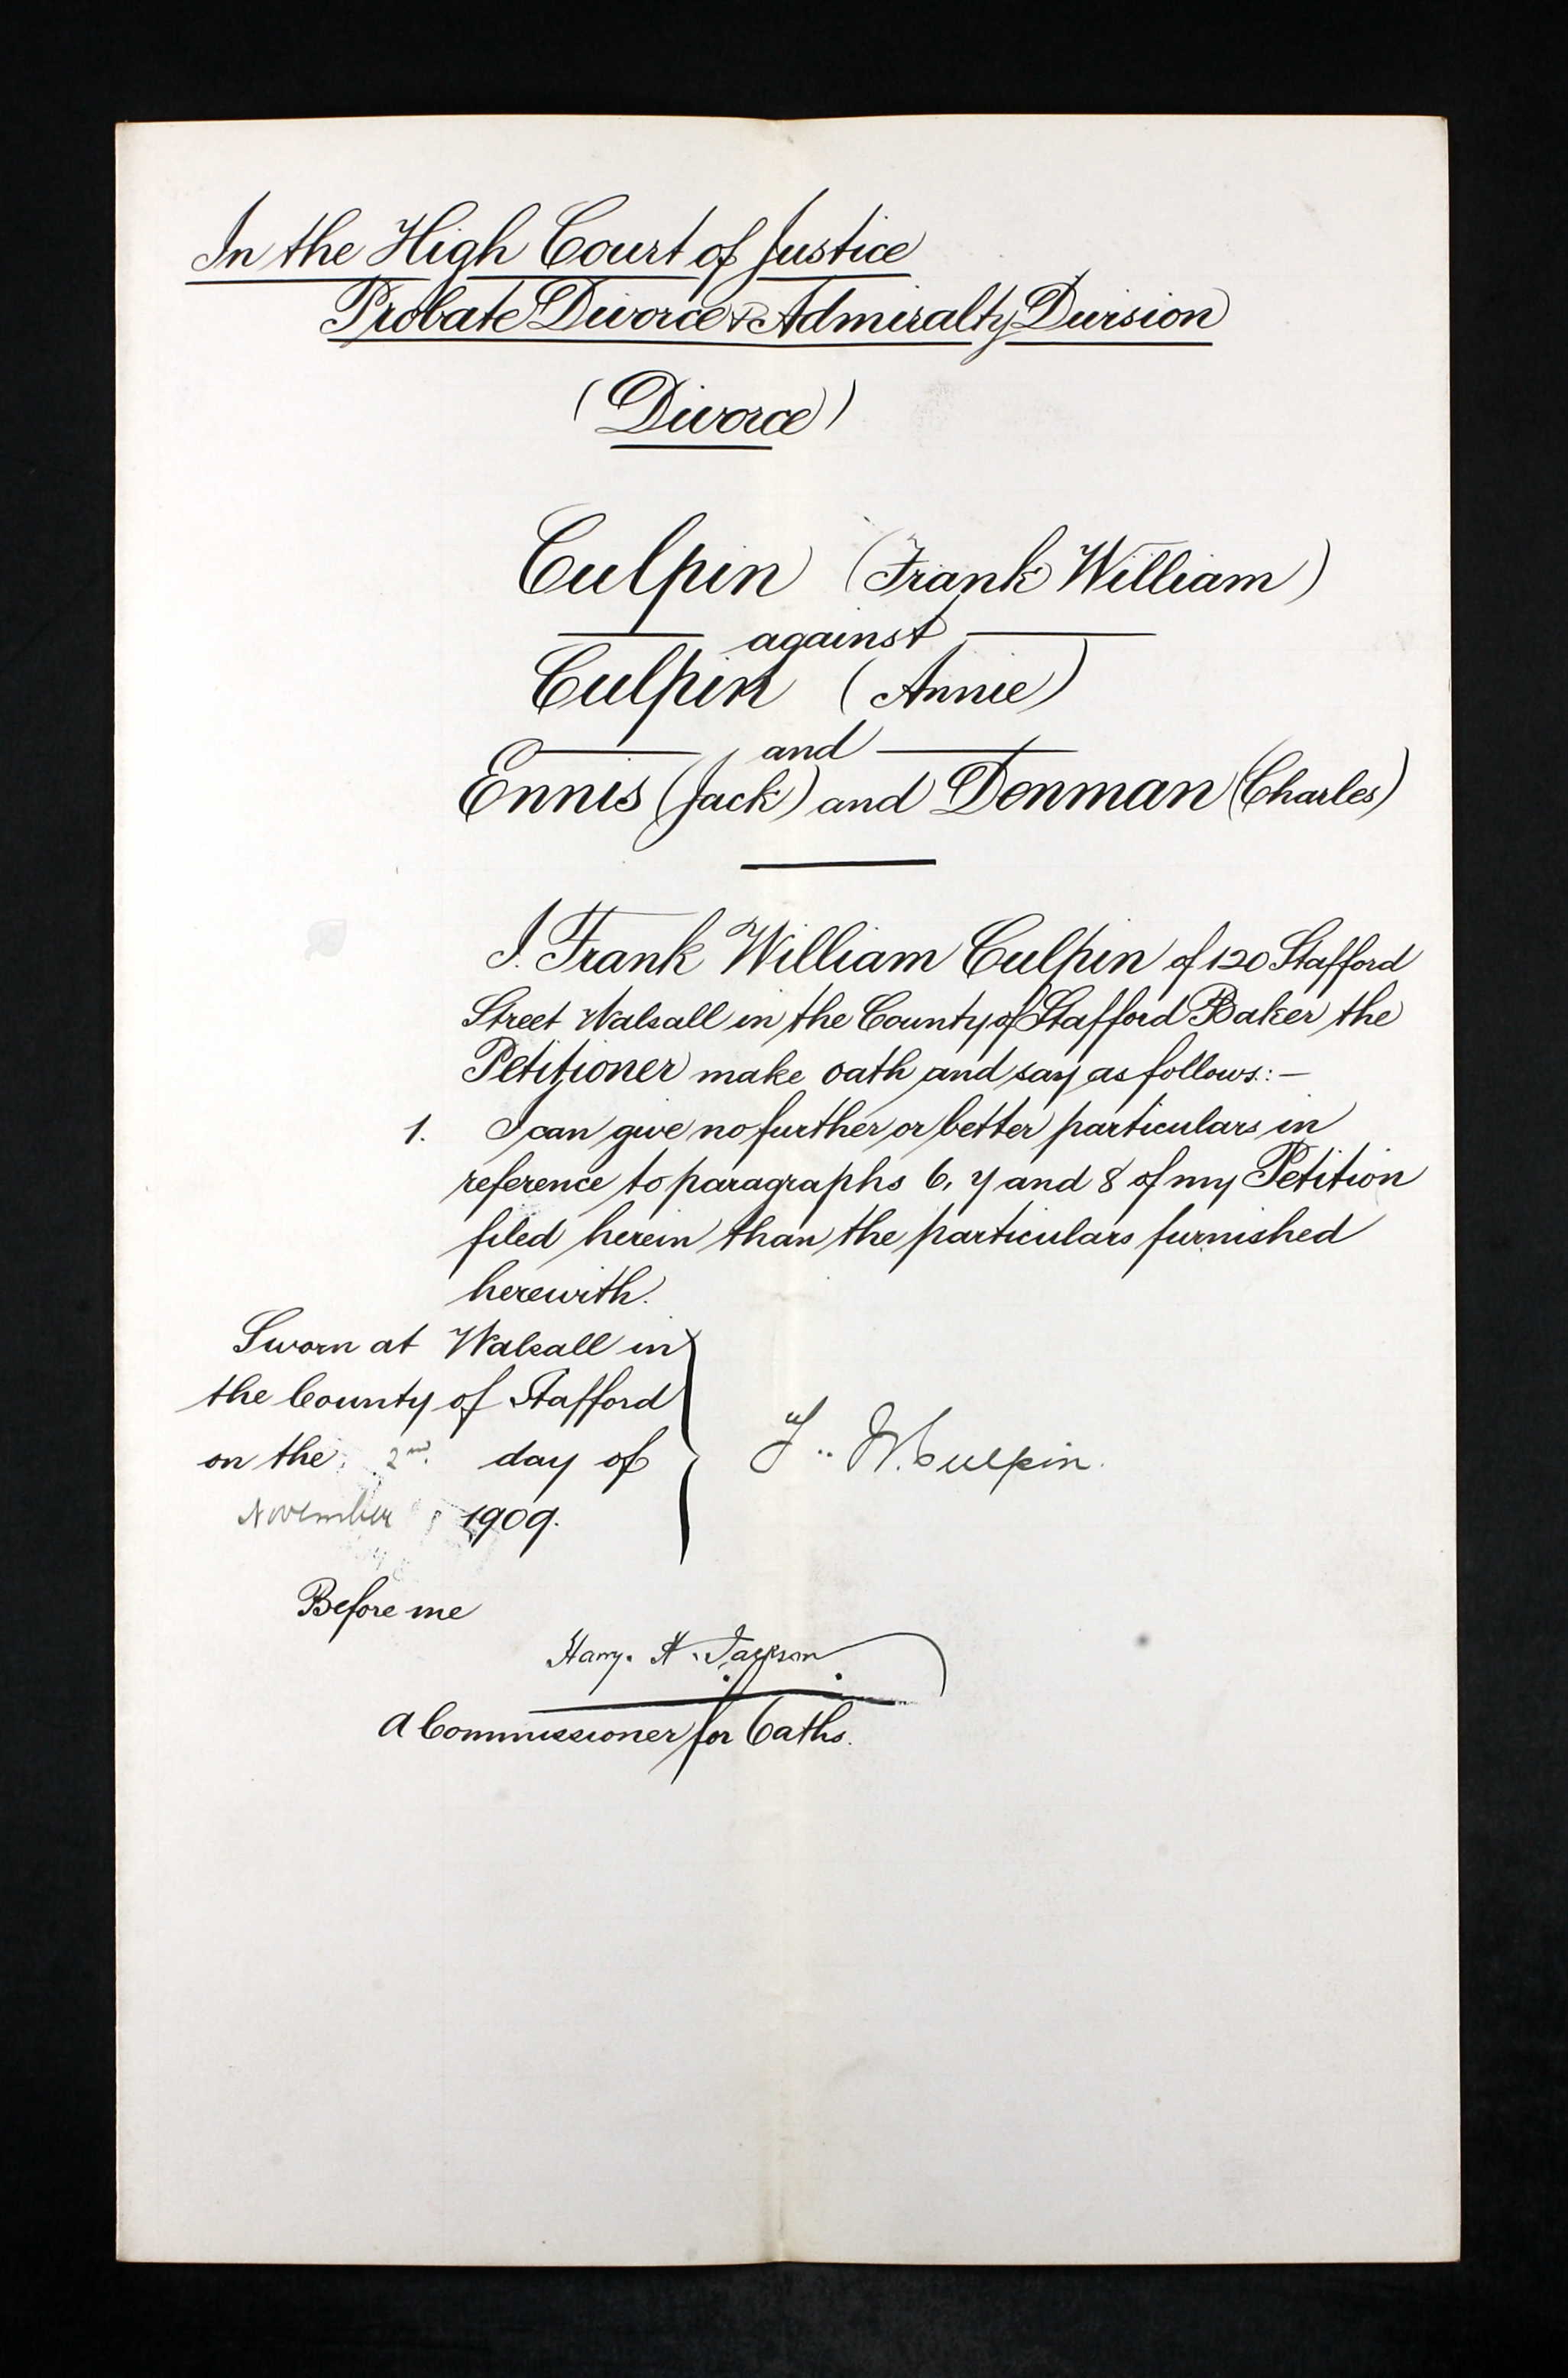 In the High Court of Justice
Probate Divorce & Admiralty Division
(Divorce)
Culpin (Frank William)
against
Culpin (Annie)
and
Ennis (Jack) and Denman (Charles)
I. Frank William Culpin of 120 Stafford
Street Walsall in the County of Stafford Baker the
Petitioner make oath and say as follows:—
1. I can give no further or better particulars in
reference to paragraphs 6, 7 and 8 of my Petition
filed herein than the particulars furnished
herewith.
Sworn at Walsall in
the County of Stafford
on the 2nd. day of
November 1909.
F.. W. Culpin.
Before me
Harry. A. Jackson
A Commissioner for Oaths.